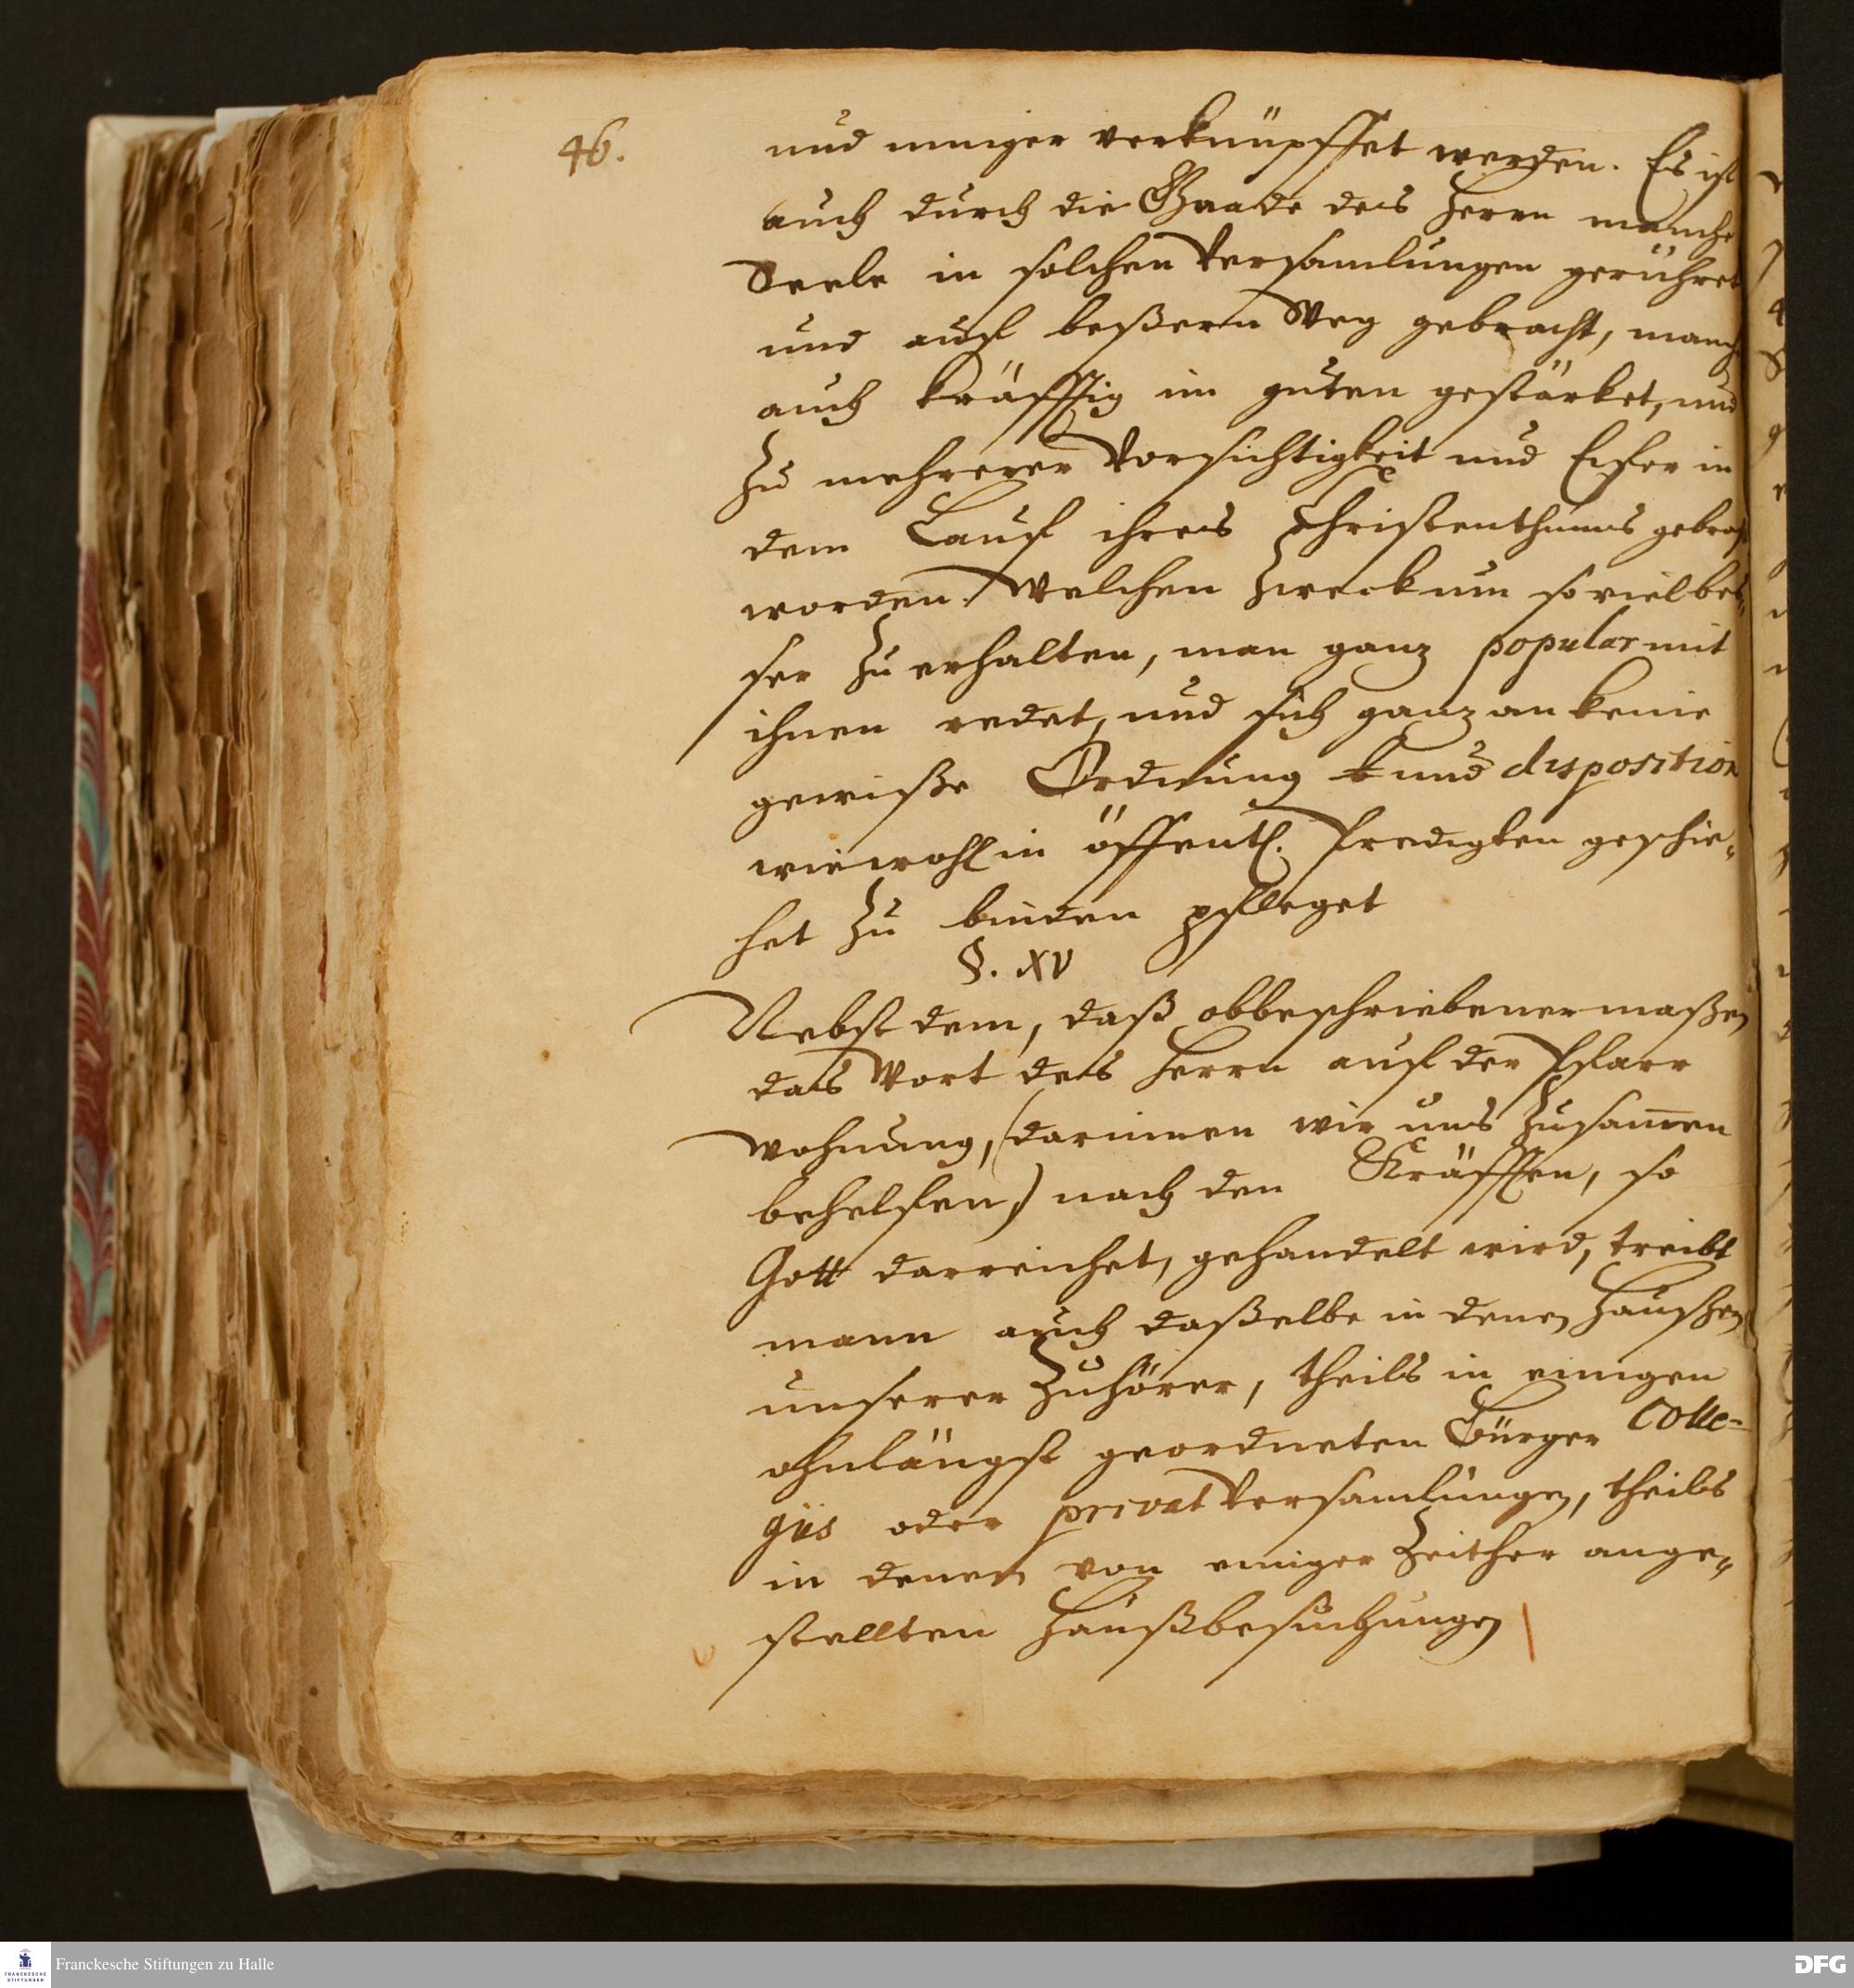 46.
und inniger verknüpffet werden. Es ist
auch durch die Gnade des Herrn manche
Seele in solchen Versamlungen gerühret
und auf beßern Weg gebracht, manche
auch kräfftig im guten gestärket, und
zu mehrerer Vorsichtigkeit und Eifer in
dem Lauf ihres Christenthums gebracht
worden. Welchen Zweck um so viel bes„
ser zu erhalten, man ganz popular mit
ihnen redet, und sich ganz an keine
gewiße Ordnung und disposition
wie wohl in öffentl. Predigten geschie„
het zu binden pfleget
§. XV
Nebst dem, daß obbeschriebener maßen
das Wort des Herrn auf der Pfarr
wohnung, (darinnen wir uns zusamen
behelfen) nach den Kräfften, so
Gott darreichet, gehandelt wird, treibt
mann auch daßelbe in denen Häußern
unserer Zuhörer, theils in einigen
ohnlängst geordneten Bürger Colle=
giis oder privat Versamlungen, theils
in denen von einiger Zeither ange„
stellten Haußbesuchungen
Franckesche Stiftungen zu Halle
FRANCKESCHE
STIFTUNGEN
DFG